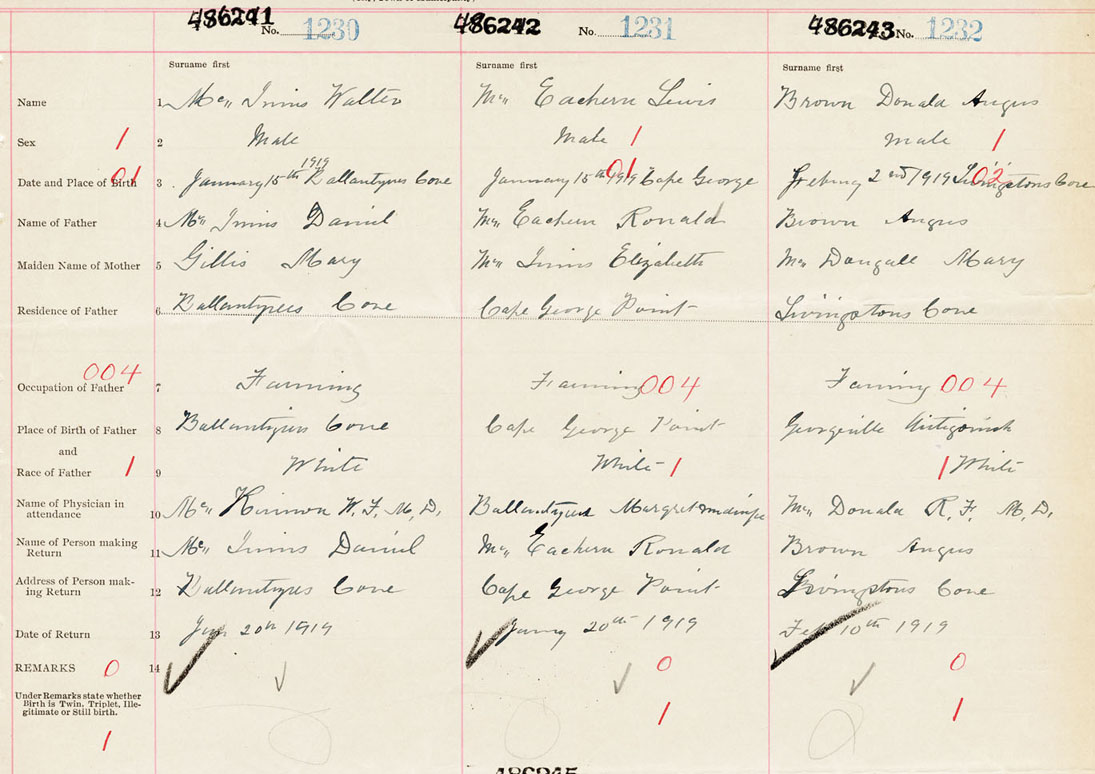 486241 No. 1230 486242 No. 1231 486243 No. 1232
Surname first Surname first Surname first
Name 1 Mc Innis Walter Mc Eachern Lewis Brown Donald Angus
Sex 1 2 Male Male 1 male 1
1919
Date and Place of Birth 01 3 January 15th Ballantynes Cove January 15th 1919 01 Cape George 2nd 1919 02 Livingstons Cove
Name of Father 4 Mc Innis Daniel Mc Eachern Ronald Brown Angus
Maiden Name of Mother 5 Gillis Mary Mc Innis Elizabeth Mc Dougall Mary
Residence of Father 6 Ballantynes Cove Cape George Point Livingstons Cove
004
Occupation of Father 7 Farming Farming 004 Farming 004
Place of Birth of Father 8 Ballantynes Cove Cape George Point Georgeville Antigonish
and
Race of Father 1 9 White White 1 1 White
Name of Physician in
attendance 10 Mc Kinnon W. F. M. D. Ballantynes Margret midwife Mc Donald R. F. M. D.
Name of Person making
Return 11 Mc Innis Daniel Mc Eachern Ronald Brown Angus
Address of Person mak-
ing Return 12 Ballantynes Cove Cape George Point Livingstons Cove
Date of Return 13 Jan 20th 1919 20th 1919 Feb 10th 1919
REMARKS 0 14 0 0
Under Remarks state whether
Birth is Twin, Triplet, Ille-
gitimate or Still birth.
1 1 1